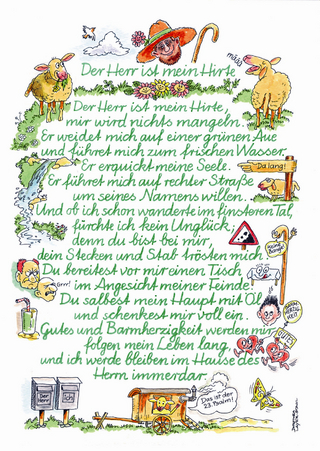 määä
Der Herr ist mein Hirte
Der Herr ist mein Hirte,
mir wird nichts mangeln.
Er weidet mich auf einer grünen Aue
und führet mich zum frischen Wasser.
Er erquickt meine Seele.
Da lang!
Er führet mich auf rechter Straße
um seines Namens willen.
Und ob ich schon wanderte im finsteren Tal,
fürchte ich kein Unglück;
denn du bist bei mir,
dein Stecken und Stab trösten mich.
Du bereitest vor mir einen Tisch
Grrr!
im Angesicht meiner Feinde!
Du salbest mein Haupt mit Öl
und schenkest mir voll ein.
Gutes und Barmherzigkeit werden mir
GUTES
folgen mein Leben lang,
und ich werde bleiben im Hause des
Herrn immerdar.
Der Herr
Ich
Das ist der
23. Psalm!